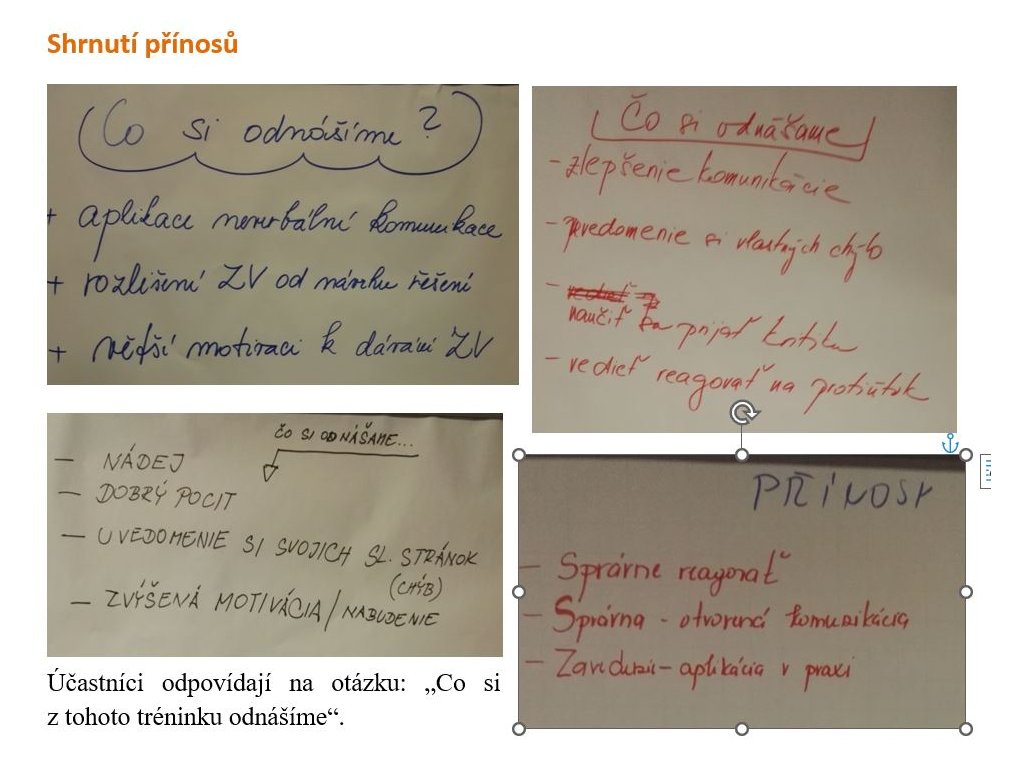 Shrnutí přínosů
Co si odnášíme?
+ aplikace neverbální komunikace
+ rozlišení ZV od návrhu řešení
+ větší motivaci k dávání ZV
Čo si odnášame
- zlepšenie komunikácie
- uvedomenie si vlastných chýb
- naučiť sa prijať kritiku
- vedieť reagovať na protiútok
ČO SI ODNÁŠAME...
- NÁDEJ
- DOBRÝ POCIT
- UVEDOMENIE SI SVOJICH SL. STRÁNOK
(CHÝB)
- ZVÝŠENÁ MOTIVÁCIA / NABUDENIE
PŘÍNOSY
- Správne reagovať
- Správna - otvorená komunikácia
- Zavedenie - aplikácia v praxi
Účastníci odpovídají na otázku: „Co si
z tohoto tréninku odnášíme“.